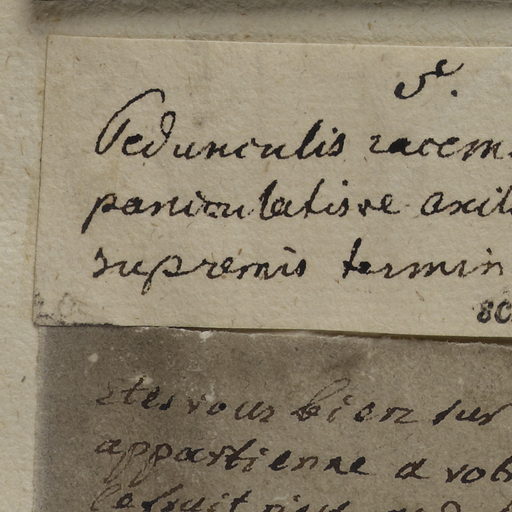 5e.
Pedunculis racem
paniculatisve axil
supremis termin
80
etes vous bien sur
appartienne a vot
le fruit